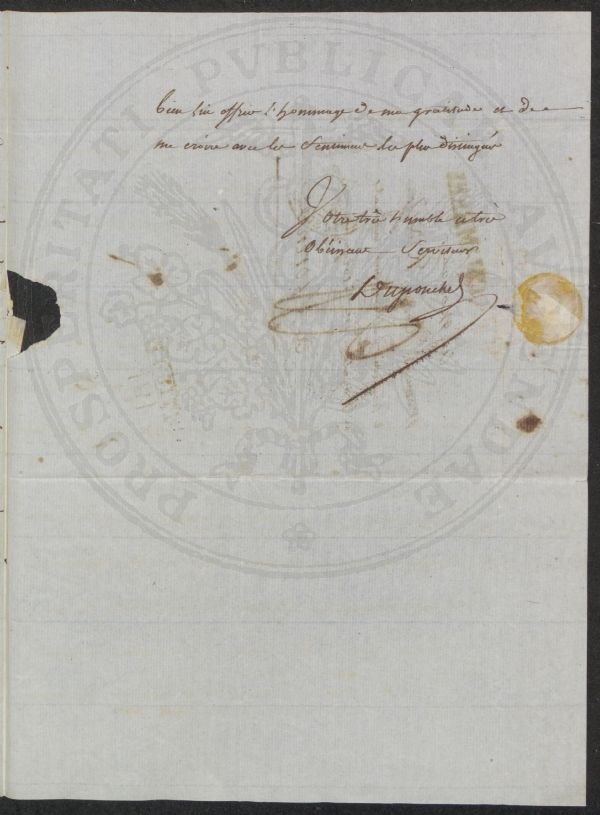 bien lui offrir l'hommage de ma gratitude et de
me croire avec les Sentimens les plus distingués
Votre très humble et très
Obéissant Serviteur
Duponchel
PROSPERITATI PVBLICAE AVGENDAE